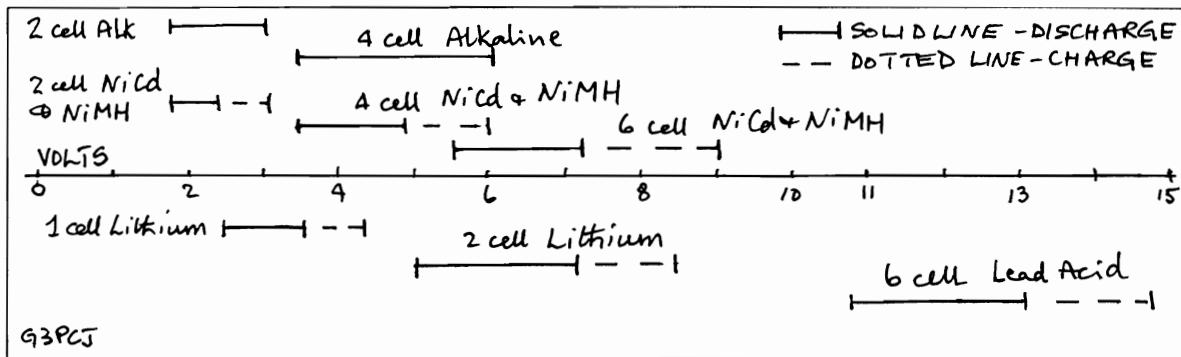 2 cell Alk
4 cell Alkaline
SOLID LINE - DISCHARGE
DOTTED LINE - CHARGE
2 cell NiCd
& NiMH
4 cell NiCd & NiMH
6 cell NiCd & NiMH
VOLTS
0 2 4 6 8 10 11 13 15
1 cell Lithium
2 cell Lithium
6 cell Lead Acid
G3PCJ